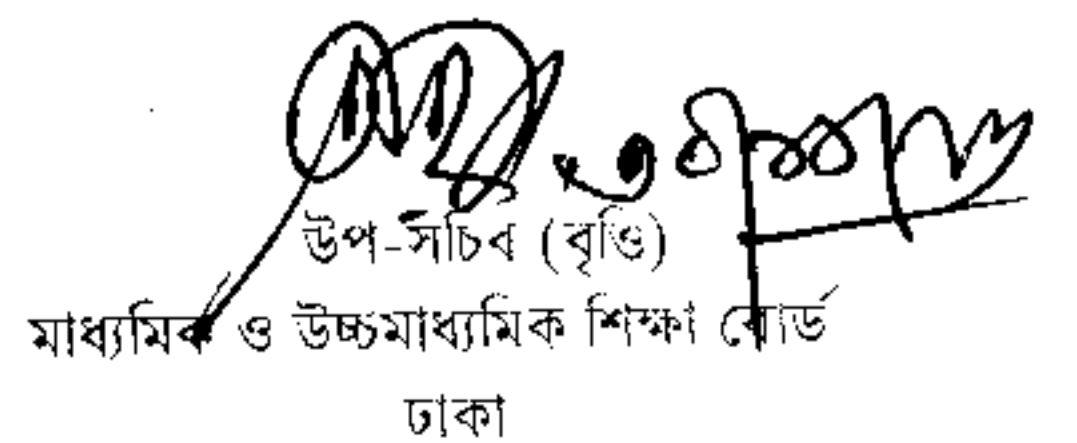 উপ-সচিব (বৃত্তি)
মাধ্যমিক ও উচ্চমাধ্যমিক শিক্ষা বোর্ড
ঢাকা